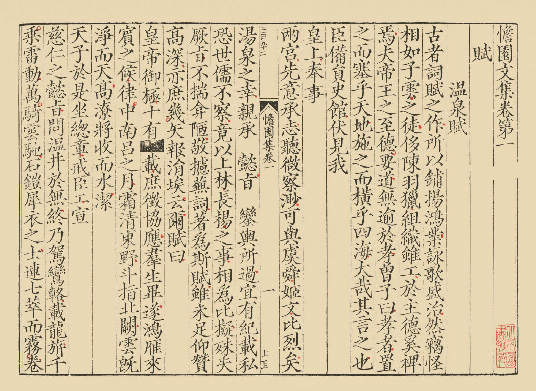 憺園文集卷第一
賦
溫泉賦
古者詞賦之作所以鋪揚鴻業詠歌盛治然竊怪
相如子雲之徒侈陳羽獵組織雖工於王德奚裨
焉夫帝王之至德要道無逾於孝曾子曰孝者置
之而塞乎天地施之而橫乎四海大哉其言之也
臣備員史館伏見我
皇上奉事
兩宮先意承志聽微察渺可與虞舜姬文比烈矣
憺園集卷一
一
湯泉之幸親承 懿旨 鑾輿所過宜有紀載私
恐世儒不察竟以上林長楊之事相為比擬殊失
厥旨不揣弇陋敬攄蕪詞著為斯賦雖未足仰贊
高深亦庶幾矢報涓埃云爾賦曰
皇帝御極十有 載庶徵協應羣生畢遂鴻雁來
賓之候律中南呂之月霜清東野斗指北闕雲旣
淨而天高潦將收而水潔
天子於是坐總章戒臣工宣
慈仁之懿旨問溫井於無終乃駕鸞輅載龍旂千
乘雷動萬騎雲馳石鎧犀衣之士連七萃而霧卷